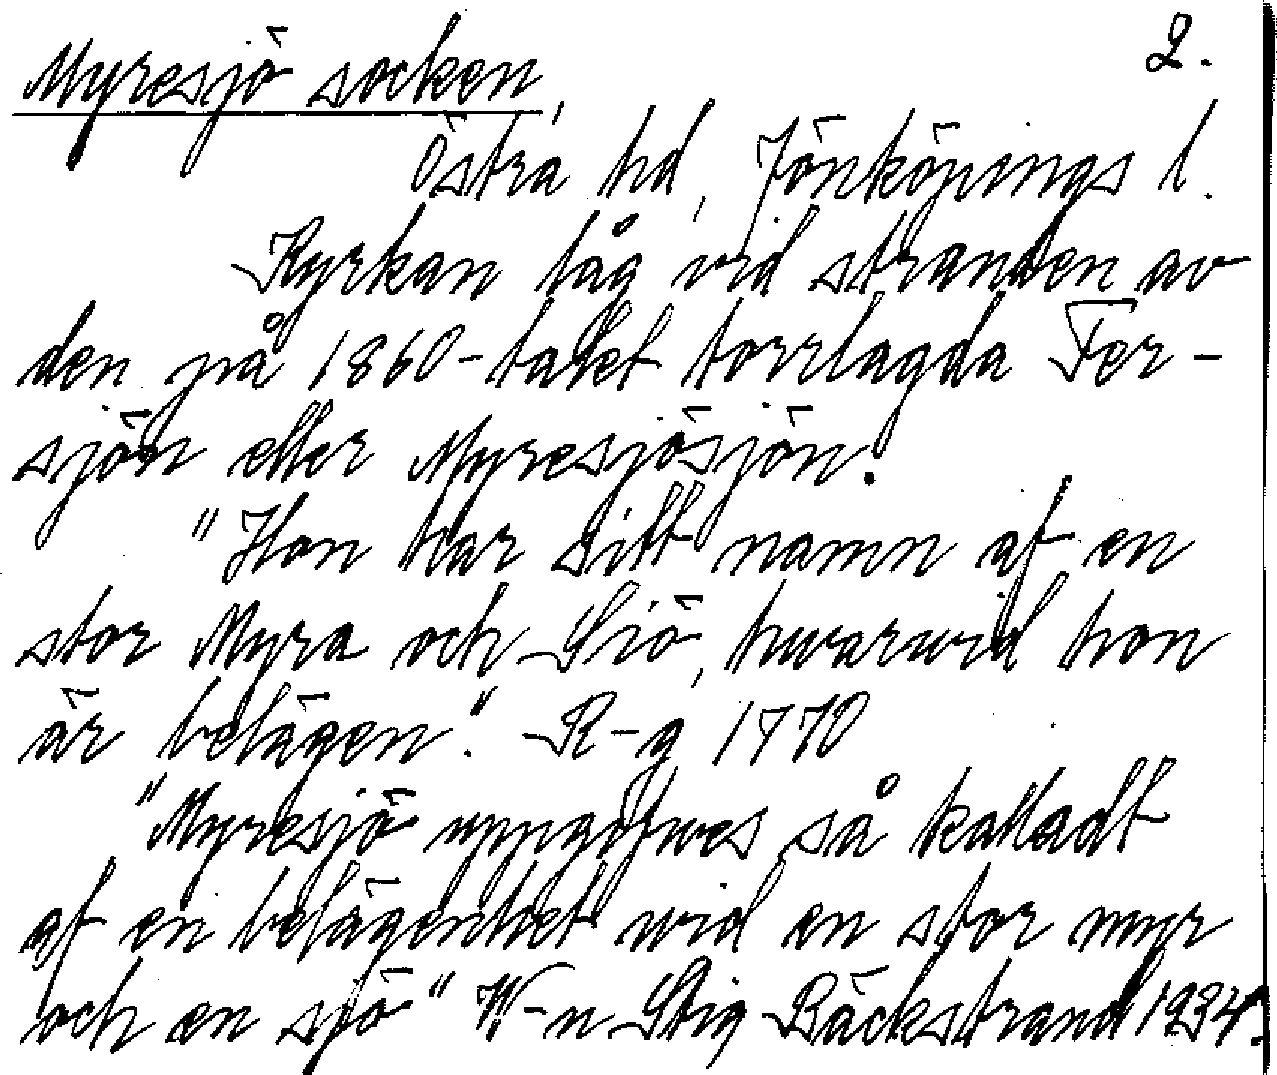 Myresjö socken, 2.
Östra hd, Jönköpings l.
Kyrkan låg vid stranden av
den på 1860-talet torrlagda Fer-
sjön eller Myresjösjön.
"Hon har sitt namn af en
stor Myra och Siö, hwarwid hon
är belägen." R-g 1770
"Myresjö uppgifwes så kalladt
af en belägenhet wid en stor myr
och en sjö" W-n Stig Bäckstrand 1934.